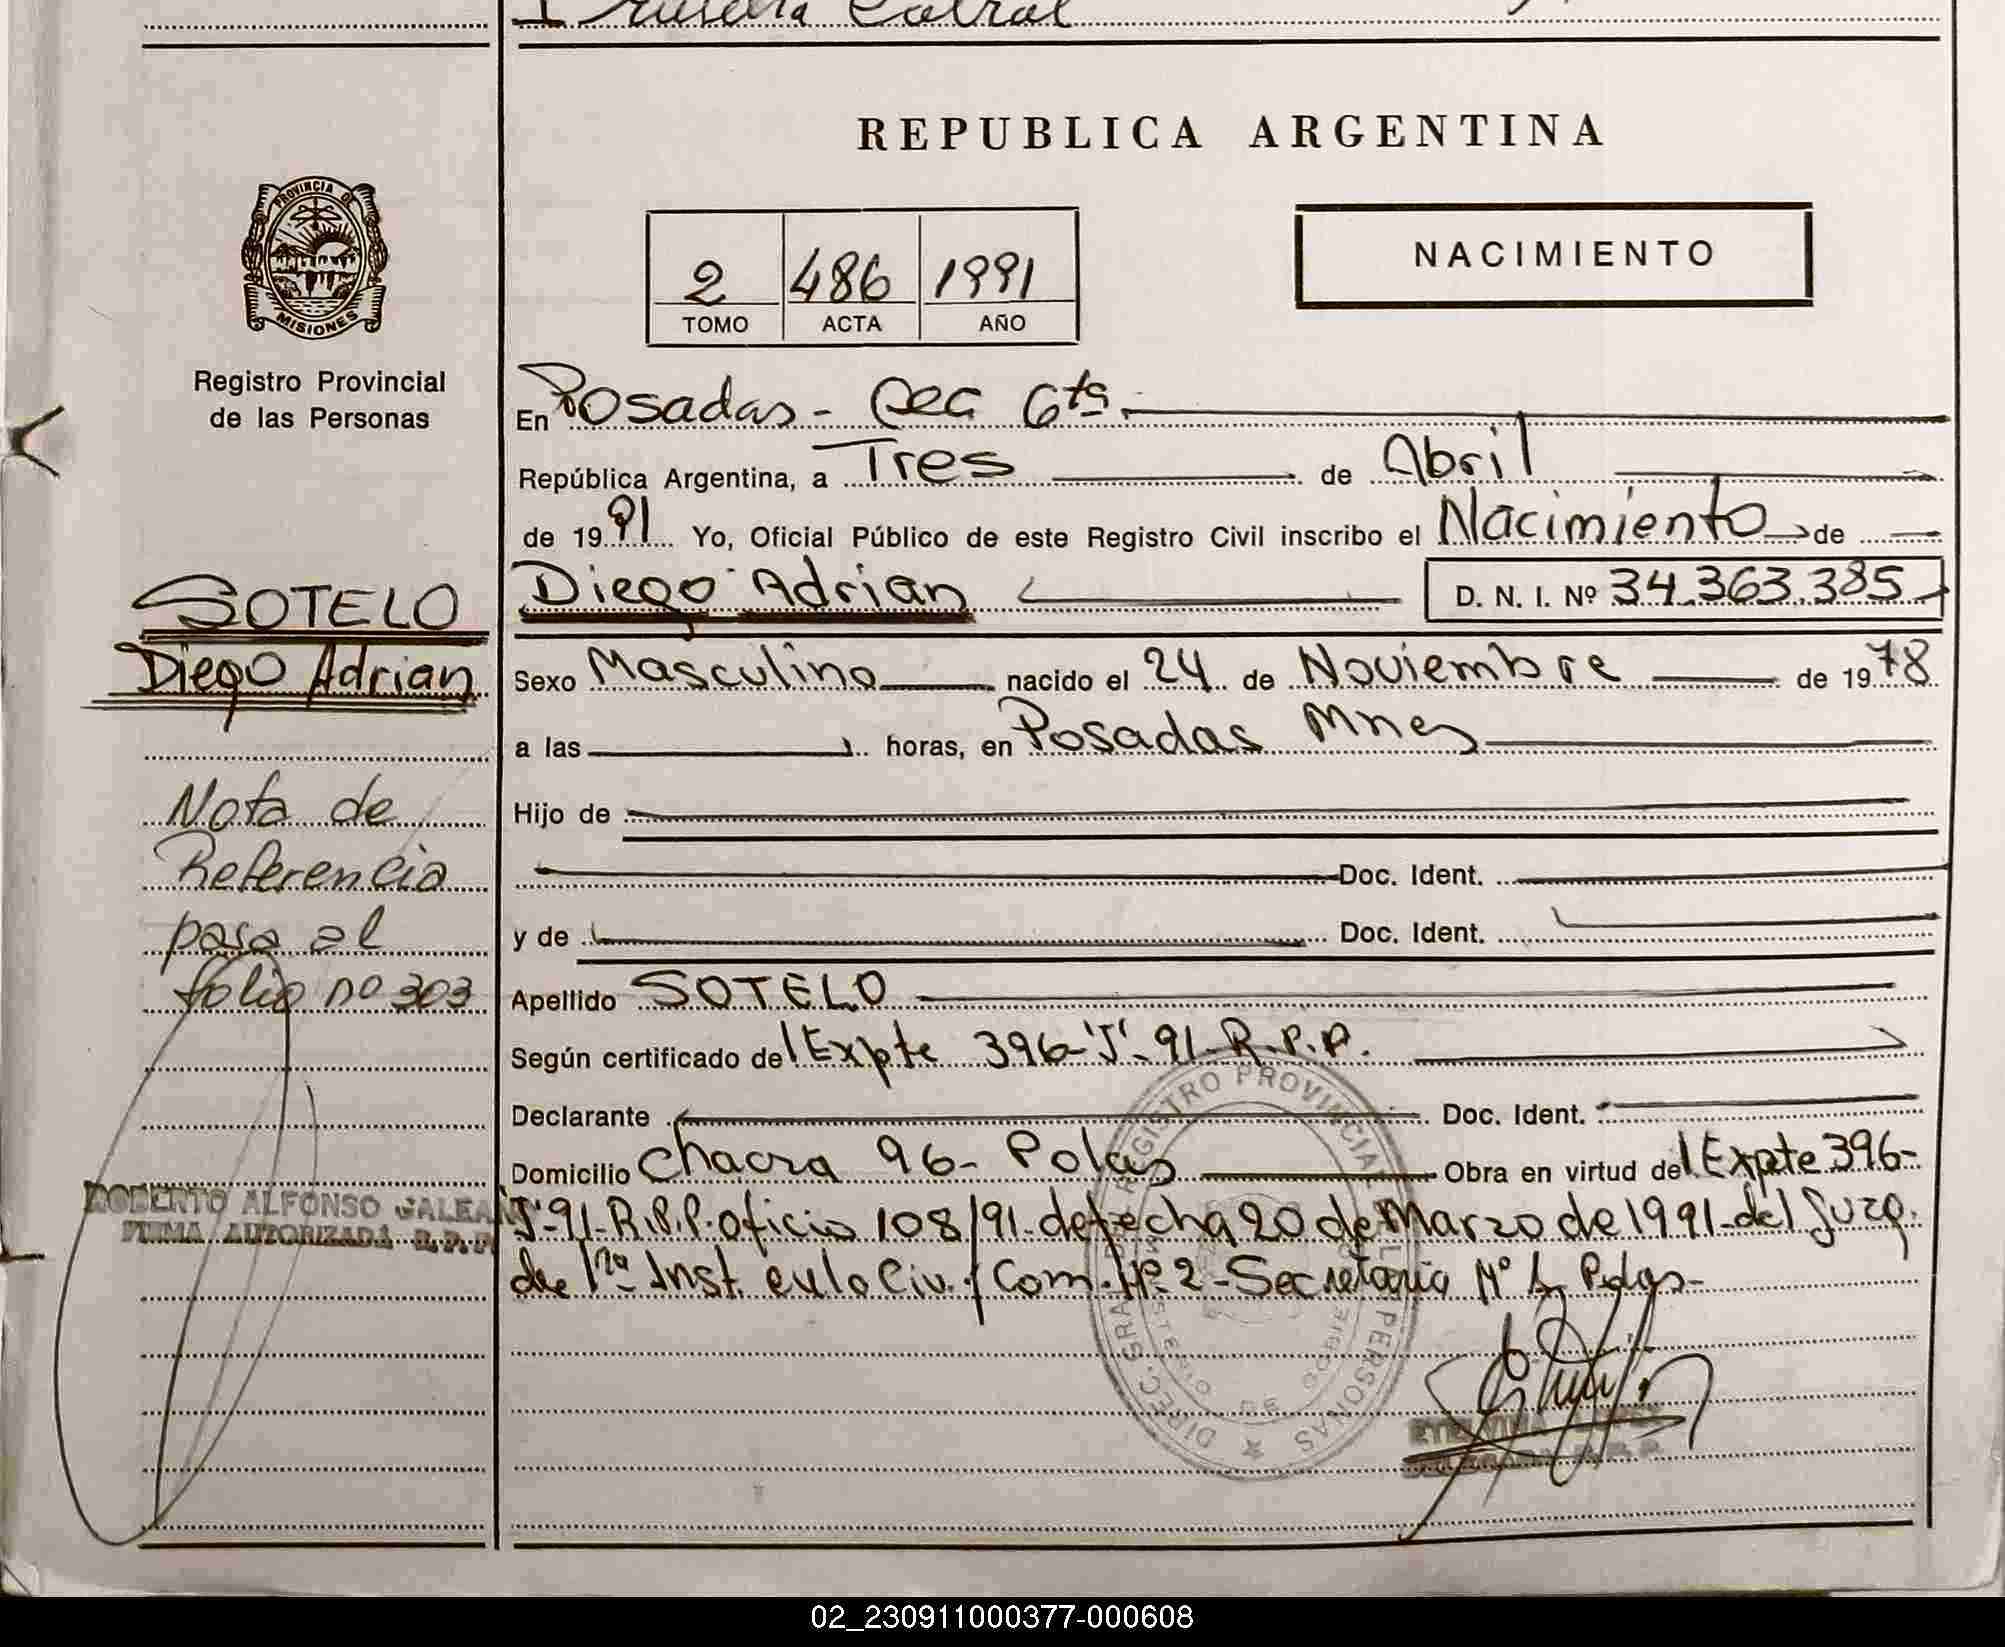 Cabral
REPUBLICA ARGENTINA
PROVINCIA DE
MISIONES
2 486 1991
TOMO ACTA AÑO
NACIMIENTO
Registro Provincial
de las Personas
En Posadas - Sec 6ta.
República Argentina, a Tres de Abril
de 1991 Yo, Oficial Público de este Registro Civil inscribo el Nacimiento de
Diego Adrian D. N. I. Nº 34.363.385
SOTELO
Diego Adrian
Sexo Masculino nacido el 24 de Noviembre de 1978
a las horas, en Posadas Mnes
Hijo de
Doc. Ident.
y de Doc. Ident.
Apellido SOTELO
Según certificado del Expte 396-'J'-91-R.P.P.
Declarante Doc. Ident.
Domicilio Chacra 96- Pdas Obra en virtud del Expte 396-
'J'-91-R.P.P. oficio 108/91 de fecha 20 de Marzo de 1991 del Juzg.
de 1ra Inst. en lo Civ. y Com. Nº 2 - Secretaria Nº 1 Pdas-
Nota de
Referencia
pasa al
folio nº 303
ROBERTO ALFONSO GALEANO
FIRMA AUTORIZADA R.P.P.
REGISTRO PROVINCIAL
PERSONAS
02_230911000377-000608